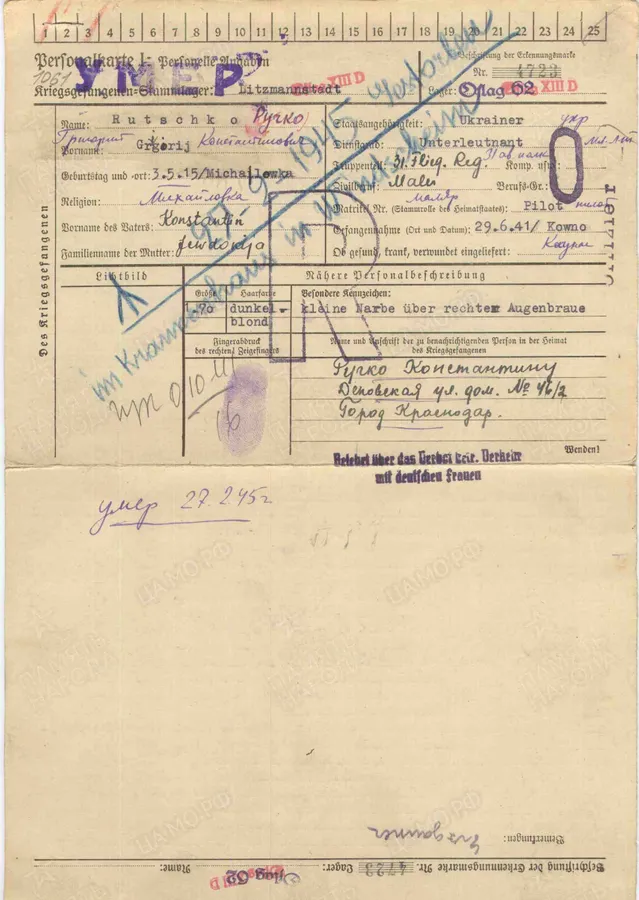 1 2 3 4 5 6 7 8 9 10 11 12 13 14 15 16 17 18 19 20 21 22 23 24 25
Personalkarte I: Personelle Angaben
Beschriftung der Erkennungsmarke
1061
УМЕР
Nr. 4723
Kriegsgefangenen-Stammlager: Litzmannstadt
XIII D
Lager: Oflag 62
XIII D
Des Kriegsgefangenen
Name: Rutschko Ручко
Staatsangehörigkeit: Ukrainer укр
Григорий Константинович
Vorname: Grigorij
Dienstgrad: Unterleutnant Мл. Лт.
Truppenteil: 31. Flieg. Reg. Komp. usw.:
Geburtstag und -ort: 3.5.15/Michailowka
Zivilberuf: Maler Berufs-Gr.:
Михайловка
маляр
Religion:
Matrikel Nr. (Stammrolle des Heimatstaates): Pilot пилот
Vorname des Vaters: Konstantin
Gefangennahme (Ort und Datum): 29.6.41/ Kowno
Familienname der Mutter: Jewdokija
Ob gesund, krank, verwundet eingeliefert:
Каунас
1945 gestorben
im Krankenhaus in
Lichtbild
Nähere Personalbeschreibung
Größe Haarfarbe
Besondere Kennzeichen:
1.70 dunkel-blond
kleine Narbe über rechtem Augenbraue
Fingerabdruck
des rechten Zeigefingers
Name und Anschrift der zu benachrichtigenden Person in der Heimat
des Kriegsgefangenen
Ручко Константину
Деповская ул. дом. № 46/2
Город Краснодар.
Wenden!
Belehrt über das Verbot betr. Verkehr
mit deutschen Frauen
умер 27.2.45г
ЦАМО.РФ
ПАМЯТЬ НАРОДА
Bemerkungen:
Beschriftung der Erkennungsmarke Nr. 4723 Lager: Oflag 62 Name:
XIII D